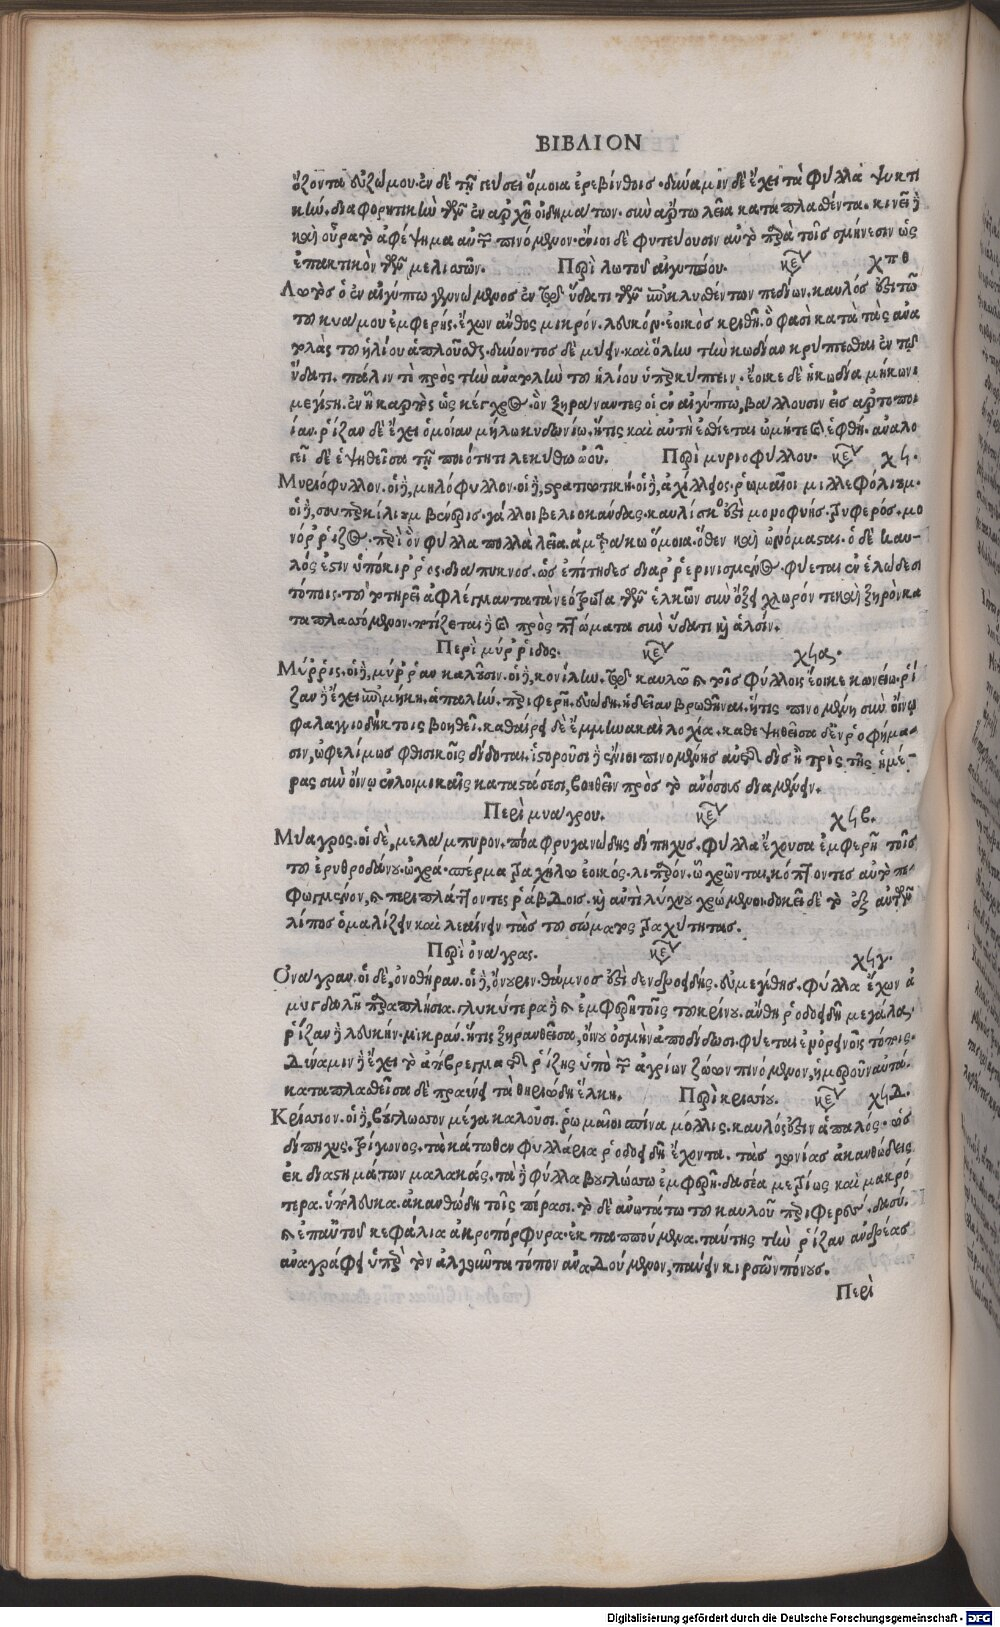 ΒΙΒΛΙΟΝ
ὄζοντα εὐζώμου. ἐν δὲ τῇ γεύσει ὅμοια ἐρεβίνθοις. δύναμιν δὲ ἔχει τὰ φύλλα ψυκτι
κὴν. διαφορητικὴν τῶν ἐν ἀρχῇ οἰδημάτων. σὺν ἄρτῳ λεῖα καταπλασθέντα. κινεῖ δὲ
καὶ οὖρα τὸ ἀφέψημα αὐτῶν πινόμενον. ἔνιοι δὲ φυτεύουσιν αὐτὸ παρὰ τοῖς σμήνεσιν ὡς
ἐπακτικὸν τῶν μελισσῶν. Περὶ λωτοῦ αἰγυπτίου. κεφ χπθ
Λωτὸς ὁ ἐν αἰγύπτῳ γεννώμενος ἐν τῷ ὕδατι τῶν ἐπικλυσθέντων πεδίων. καυλός ἐστι τῷ
τοῦ κυάμου ἐμφερής. ἔχων ἄνθος μικρόν. λευκόν. ἐοικὸς κρίνῃ. ὅ φασὶ κατὰ τὰς ἀνα
τολὰς τοῦ ἡλίου ἁπλοῦσθαι. δύοντος δὲ μύειν. καὶ ὅλην τὴν κωδίαν κρύπτεσθαι ἐν τῷ
ὕδατι. πάλιν τὲ πρὸς τὴν ἀνατολὴν τοῦ ἡλίου ὑπερκύπτειν. ἔοικε δὲ ἡ κωδία μήκωνι
μεγίστη. ἐν ᾗ καρπὸς ὡς κέγχρος. ὃν ξηράναντες οἱ ἐν αἰγύπτῳ, βάλλουσιν εἰς ἀρτοποι
ίαν. ῥίζαν δὲ ἔχει ὁμοίαν μήλῳ κυδωνίῳ. ἥτις καὶ αὐτὴ ἐσθίεται ὠμή τε καὶ ἑφθή. ἀναλο
γεῖ δὲ ἑψηθεῖσα τῇ ποιότητι λεκύθῳ ὠοῦ. Περὶ μυριοφύλλου. κεφ χϟ.
Μυριόφυλλον. οἱ δὲ, μηλόφυλλον. οἱ δὲ, στρατιωτική. οἱ δὲ, ἀχίλλειος. ῥωμαῖοι μιλλεφόλιουμ.
λός ἐστιν ὑπόκιρρος. διάπυκνος. ὡς ἐπίτηδες διαρρερινισμένος. φύεται ἐν ἑλώδεσι
τόποις. τοῦτο τηρεῖ ἀφλέγμαντα τὰ νεότρωτα τῶν ἑλκῶν σὺν ὄξει χλωρόν τε καὶ ξηρὸν κα
ταπλασσόμενον. ποτίζεται δὲ καὶ πρὸς πτώματα σὺν ὕδατι καὶ ἁλσίν.
Περὶ μύρριδος. κεφ χϟα.
Μύρρις. οἱ δὲ, μύρραν καλοῦσιν. οἱ δὲ, κονίλην. τῷ καυλῷ καὶ τοῖς φύλλοις ἔοικε κωνείῳ. ῥί
ζαν δὲ ἔχει ἐπιμήκη. ἁπαλὴν. περιφερῆ. εὐώδη. ἡδεῖαν βρωθῆναι. ἥτις πινομένη σὺν οἴνῳ
φαλαγγιοδήκτοις βοηθεῖ. καθαίρει δὲ ἔμμηνα καὶ λοχία. καθεψηθεῖσα δὲ ἐν ῥοφήμα-
σιν, ὠφελίμως φθισικοῖς δίδοται. ἱστοροῦσι δὲ ἔνιοι πινομένης αὐτῆς δὶς ἢ τρὶς τῆς ἡμέ-
ρας σὺν οἴνῳ ἐν λοιμικαῖς καταστάσεσι, βοηθεῖν πρὸς τὸ ἀνόσους διαμένειν.
Περὶ μυάγρου. κεφ χϟβ.
Μύαγρος. οἱ δὲ, μελάμπυρον. πόα φρυγανώδης δίπηχυς. φύλλα ἔχουσα ἐμφερῆ τοῖς
τοῦ ἐρυθροδάνου. ὠχρά. σπέρμα τραχήλῳ ἐοικός. λιπαρόν. ᾧ χρῶνται, κόπτοντες αὐτὸ πε
φωγμένον, καὶ περιπλάττοντες ῥάβδοις. καὶ ἀντὶ λύχνου χρώμενοι. δοκεῖ δὲ τὸ ἐξ αὐτῶν
λίπος ὁμαλίζειν καὶ λεαίνειν τὰς τοῦ σώματος τραχύτητας.
Περὶ ὀνάγρας. κεφ χϟγ.
Ὀνάγραν. οἱ δὲ, ὀνοθήραν. οἱ δὲ, ὄνουριν. θάμνος ἐστὶ δενδροειδής. εὐμεγέθης. φύλλα ἔχων ἀ
μυγδαλῇ παραπλήσια. πλατύτερα δὲ καὶ ἐμφερῆ τοῖς τοῦ κρίνου. ἄνθη ῥοδοειδῆ μεγάλα.
ῥίζαν δὲ λευκήν. μικράν. ἥτις ξηρανθεῖσα, οἴνου ὀσμὴν ἀποδίδωσι. φύεται ἐν ὀρεινοῖς τόποις.
Δύναμιν δὲ ἔχει τὸ ἀπόβρεγμα τῆς ῥίζης ὑπὸ τῶν ἀγρίων ζώων πινόμενον, ἡμεροῦν αὐτά.
καταπλασθεῖσα δὲ πραΰνει τὰ θηριώδη ἕλκη. Περὶ κιρσίου. κεφ χϟΔ.
Κρίσιον. οἱ δὲ, βούγλωσσον μέγα καλοῦσι. ῥωμαῖοι σπίνα μόλλις. καυλός ἐστιν ἁπαλός. ὡς
δίπηχυς. τρίγωνος. τὰ κάτωθεν φυλλάρια ῥοδοειδῆ ἔχοντα. τὰς γωνίας ἀκανθώδεις
ἐκ διαστημάτων μαλακάς. τὰ δὲ φύλλα βουγλώσσῳ ἐμφερῆ. δασέα μετρίως καὶ μακρό
τερα. ὑπόλευκα. ἀκανθώδη τοῖς πέρασι. τὸ δὲ ἀνωτάτω τοῦ καυλοῦ περιφερὲς, δασύ.
καὶ ἐπ' αὐτοῦ κεφάλια ἀκροπόρφυρα. ἐκπαππούμενα. ταύτης τὴν ῥίζαν ἀνδρέας
ἀναγράφει ὑπὲρ τὸν ἀλγοῦντα τόπον ἀναδουμένην, παύειν κιρσῶν πόνους.
Περὶ
Digitalisierung gefördert durch die Deutsche Forschungsgemeinschaft - DFG